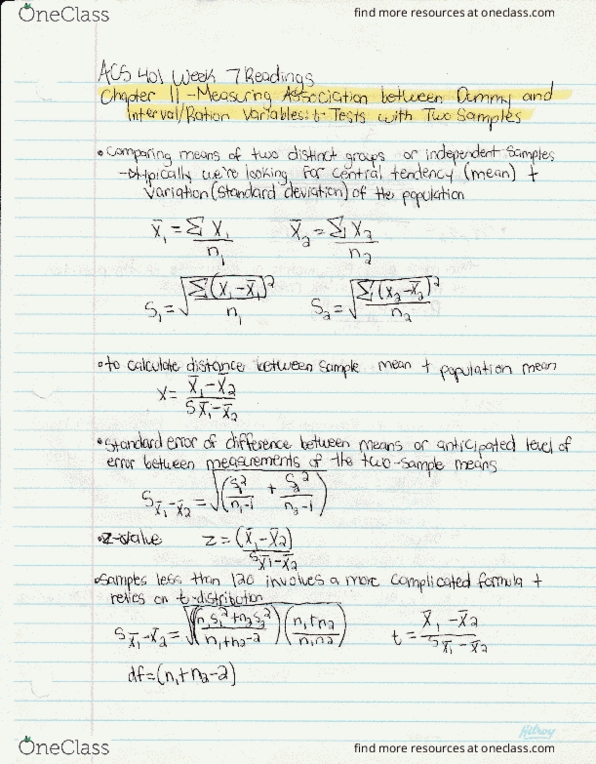 OneClass
find more resources at oneclass.com
ACS 401 Week 7 Readings
Chapter 11 - Measuring Association between Dummy and
Interval/Ration Variables: t-Tests with Two Samples
• Comparing means of two distinct groups or independent samples
→ typically we're looking for central tendency (mean) +
variation (standard deviation) of the population
X̄₁ = ΣX₁/n₁ X̄₂ = ΣX₂/n₂
S₁ = √(Σ(X₁-X̄₁)²/n₁) S₂ = √(Σ(X₂-X̄₂)²/n₂)
• to calculate distance between sample mean + population mean
X = (X̄₁-X̄₂)/(S X̄₁-X̄₂)
• Standard error of difference between means or anticipated level of
error between measurements of the two-sample means
S X̄₁-X̄₂ = √(S₁²/(n₁-1) + S₂²/(n₂-1))
• z-value z = (X̄₁-X̄₂)/(S X̄₁-X̄₂)
• Samples less than 120 involves a more complicated formula +
relies on t-distribution
S X̄₁-X̄₂ = √((n₁S₁²+n₂S₂²)/(n₁+n₂-2)) ((n₁+n₂)/(n₁n₂)) t = (X̄₁-X̄₂)/(S X̄₁-X̄₂)
df = (n₁+n₂-2)
Hilroy
OneClass
find more resources at oneclass.com